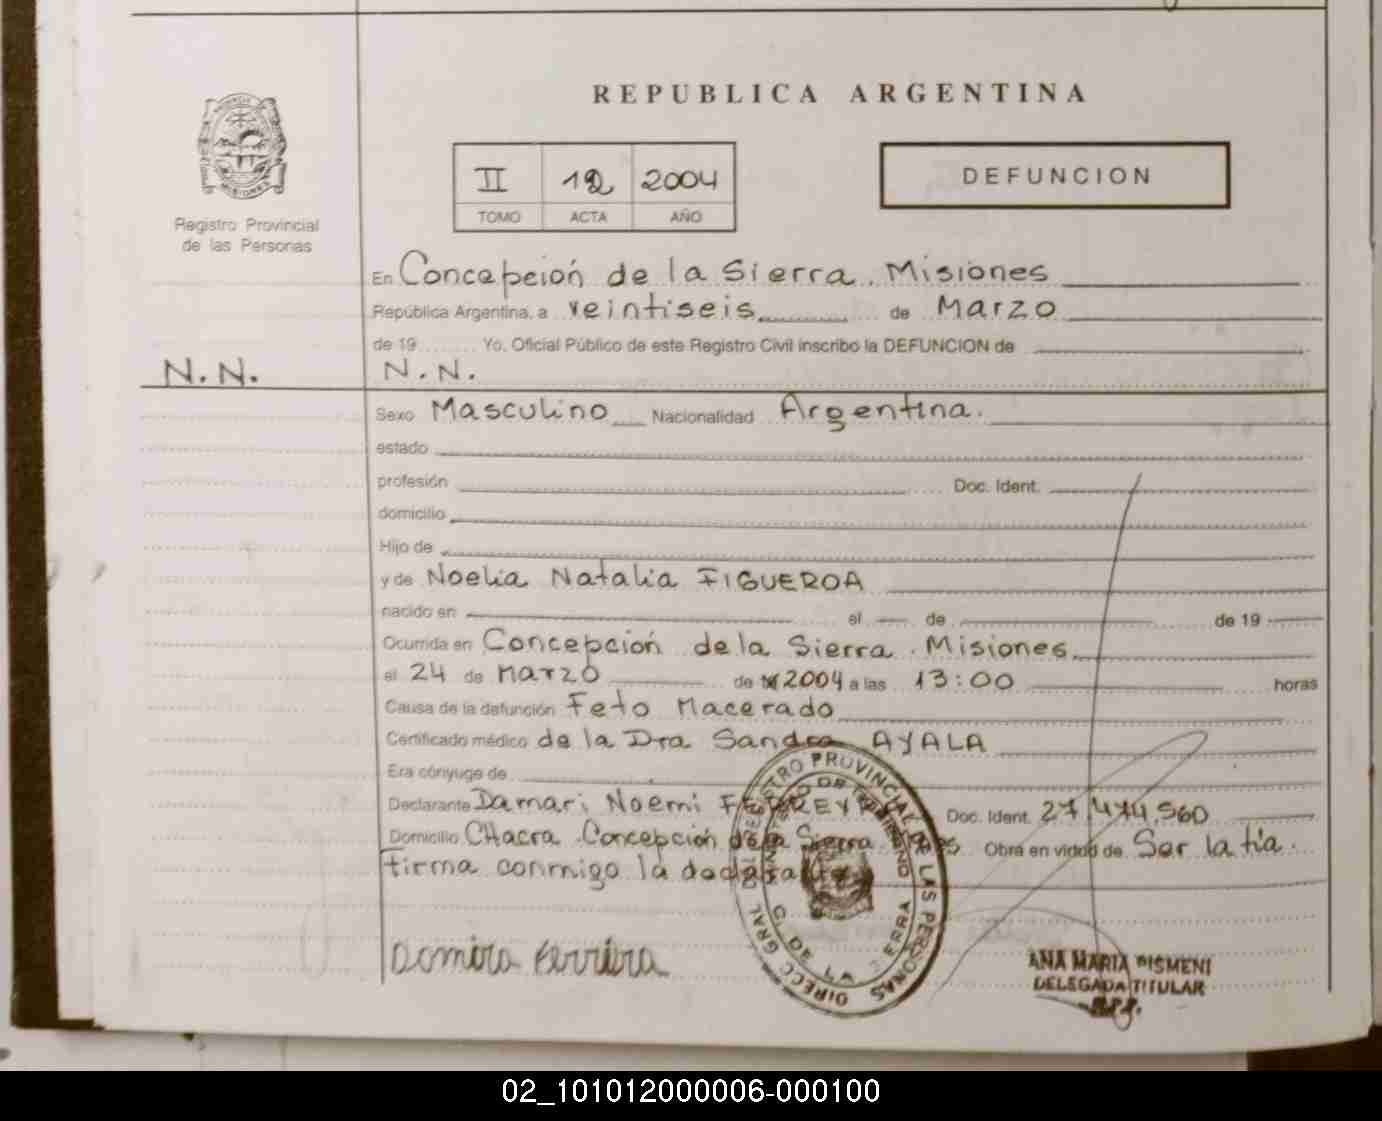 REPUBLICA ARGENTINA
II 12 2004
TOMO ACTA AÑO
DEFUNCION
Registro Provincial
de las Personas
En Concepción de la Sierra. Misiones
República Argentina, a veintiseis de Marzo
de 19 Yo, Oficial Público de este Registro Civil inscribo la DEFUNCION de
N.N. N.N.
Sexo Masculino Nacionalidad Argentina.
estado
profesión Doc. Ident.
domicilio
Hijo de
y de Noelia Natalia FIGUEROA
nacido en el de de 19
Ocurrida en Concepción de la Sierra. Misiones
el 24 de Marzo de 2004 a las 13:00 horas
Causa de la defunción Feto Macerado
Certificado médico de la Dra Sandra AYALA
Era cónyuge de
Declarante Damari Noemi FERREYRA Doc. Ident. 27.474.560
Domicilio CHacra. Concepción de la Sierra Obra en virtud de Ser la tía.
firma conmigo la declarante
DIRECC GRAL REGISTRO PROVINCIAL DE LAS PERSONAS
C. DE LA SIERRA
ANA MARIA PISMENI
DELEGADA TITULAR
02_101012000006-000100